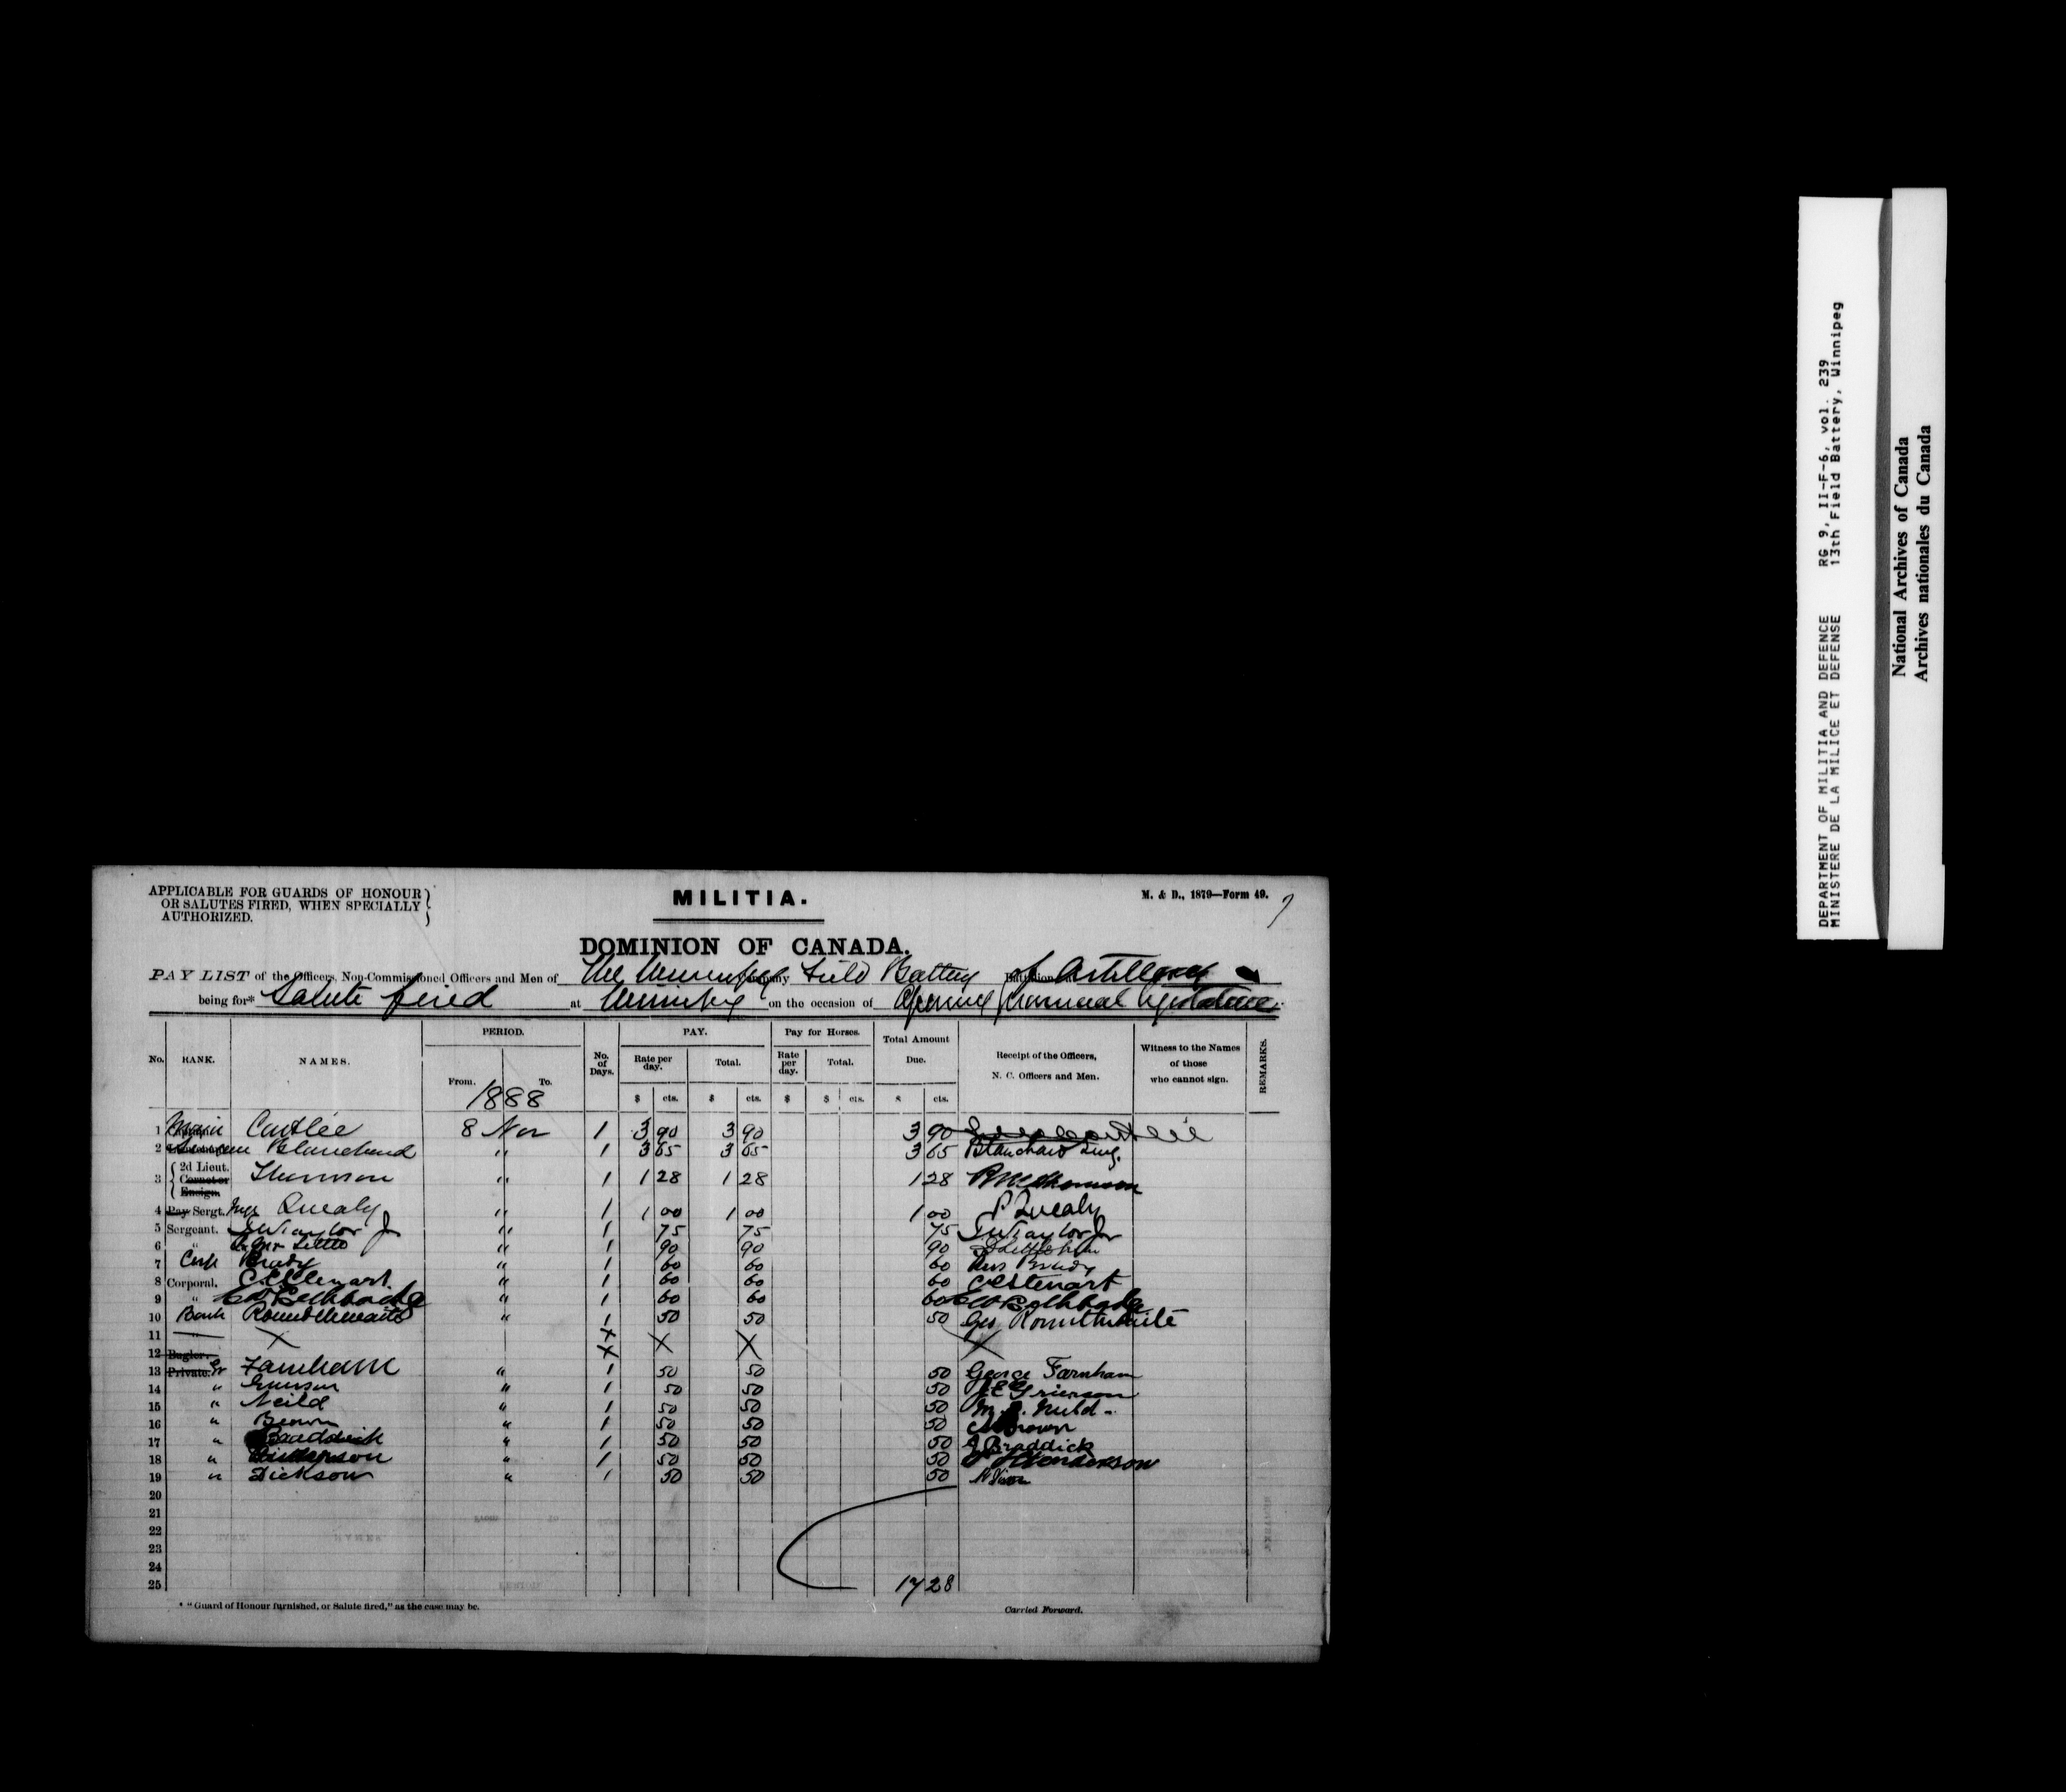 APPLICABLE FOR GUARDS OF HONOUR
OR SALUTES FIRED, WHEN SPECIALLY
AUTHORIZED.
MILITIA.
M. & D., 1879—Form 49.
DOMINION OF CANADA.
PAY LIST of the Officers, Non-Commissioned Officers and Men of The Winnipeg Company Field Battery Battalion of Artillery
being for* Salute fired at Winnipeg on the occasion of Opening Provincial Legislature
No. RANK. NAMES. PERIOD. From. To. No. of Days. PAY. Rate per day. Total. Pay for Horses. Rate per day. Total. Total Amount Due. Receipt of the Officers, N. C. Officers and Men. Witness to the Names of those who cannot sign. REMARKS.
1888
$ cts. $ cts. $ $ cts. $ cts.
1 Major 8 Nov 1 3 90 3 90 3 90
2 Surgeon Blanchard " 1 3 65 3 65 3 65 Blanchard Surg.
3 2d Lieut. Cornet or Ensign. Thomson " 1 1 28 1 28 1 28
4 Pay Sergt. Quealy " 1 1 00 1 00 1 00 P Quealy
5 Sergeant. Taylor Jr " 1 75 75 75 Taylor Jr
6 " " 1 90 90 90
7 Corp Brady " 1 60 60 60 Brady
8 Corporal. C Stewart " 1 60 60 60 Stewart
9 " " 1 60 60 60
10 Bomb Rounthwaite " 1 50 50 50 Geo Rounthwaite
11 " X X X X X
12 Bugler. X
13 Private. Gr Farnham " 1 50 50 50 George Farnham
14 " Grierson " 1 50 50 50 Grierson
15 " Neild " 1 50 50 50 Neild
16 " Brown " 1 50 50 50 Brown
17 " Braddick " 1 50 50 50 J Braddick
18 " Henderson " 1 50 50 50 Henderson
19 " Dickson " 1 50 50 50
20
21
22
23
24
25 17 28
* "Guard of Honour furnished, or Salute fired," as the case may be.
Carried Forward.
DEPARTMENT OF MILITIA AND DEFENCE RG 9, II-F-6, vol. 239
MINISTERE DE LA MILICE ET DEFENSE 13th Field Battery, Winnipeg
National Archives of Canada
Archives nationales du Canada